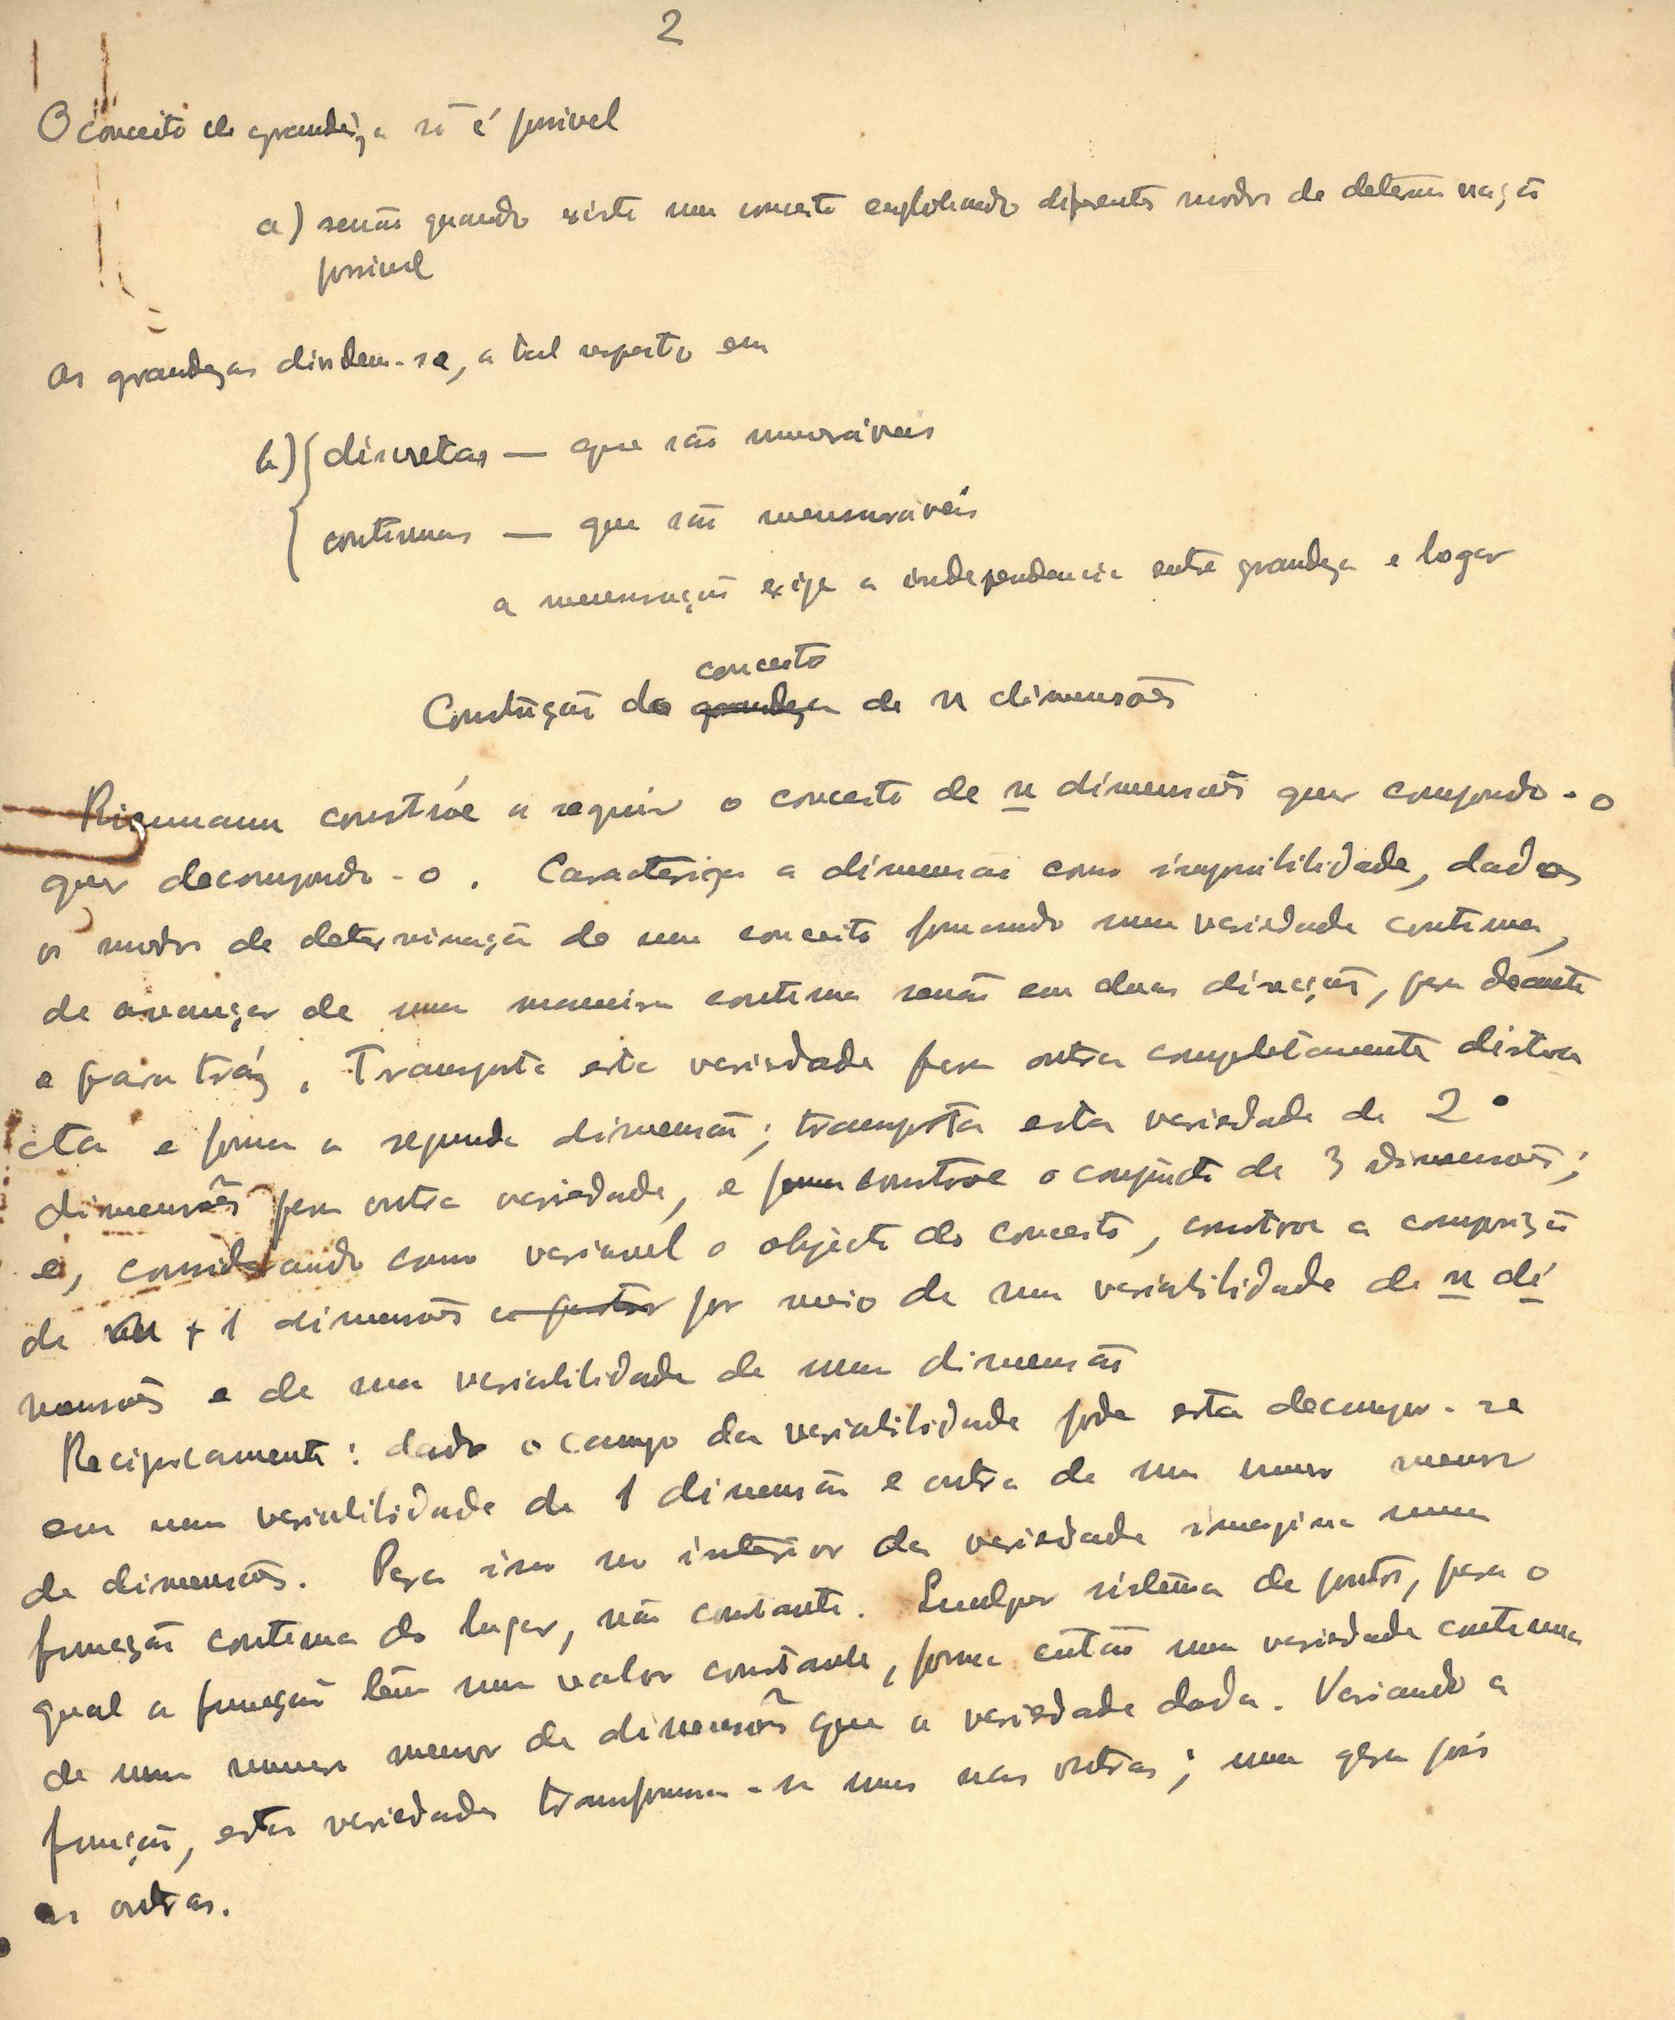 2
O conceito de grandeza só é possivel
a) senão quando existe um conceito englobando diferentes modos de determinação
possivel
As grandezas dividem-se, a tal respeito em
b) { discretas — que são numeráveis
{ continuas — que são mensuráveis
a mensuração exige a independencia entre grandeza e logar
conceito
Construção do grandeza de n dimensões
Riemann constróe a seguir o conceito de n dimensões quer compondo-o
quer decompondo-o. Caracteriza a dimensão como impossibilidade, dados
os modos de determinação de um conceito formando uma variedade continua,
de avançar de uma maneira continua senão em duas direcções, para deante
e para tráz. Transporta esta variedade para outra completamente distin
cta e forma a segunda dimensão; transporta esta variedade de 2
dimensões para outra variedade, e forma constroe o conjuncto de 3 dimensões;
e, considerando como variavel o objecto do conceito, constroe a composição
de n + 1 dimensões por meio de uma variabilidade de n di
mensões e de uma variabilidade de uma dimensão
Reciprocamente: dado o campo da variabilidade pode esta decompor-se
em uma variabilidade de 1 dimensão e outra de um numero menor
de dimensões. Para isso no interior da variedade imagina uma
funcção continua do lugar, não constante. Qualquer sistema de pontos, para o
qual a funcção têm um valor constante, forma então uma variedade continua
de um numero menor de dimensões que a variedade dada. Variando a
funcção, estas variedades transformam-se umas nas outras; uma gera pois
as outras.